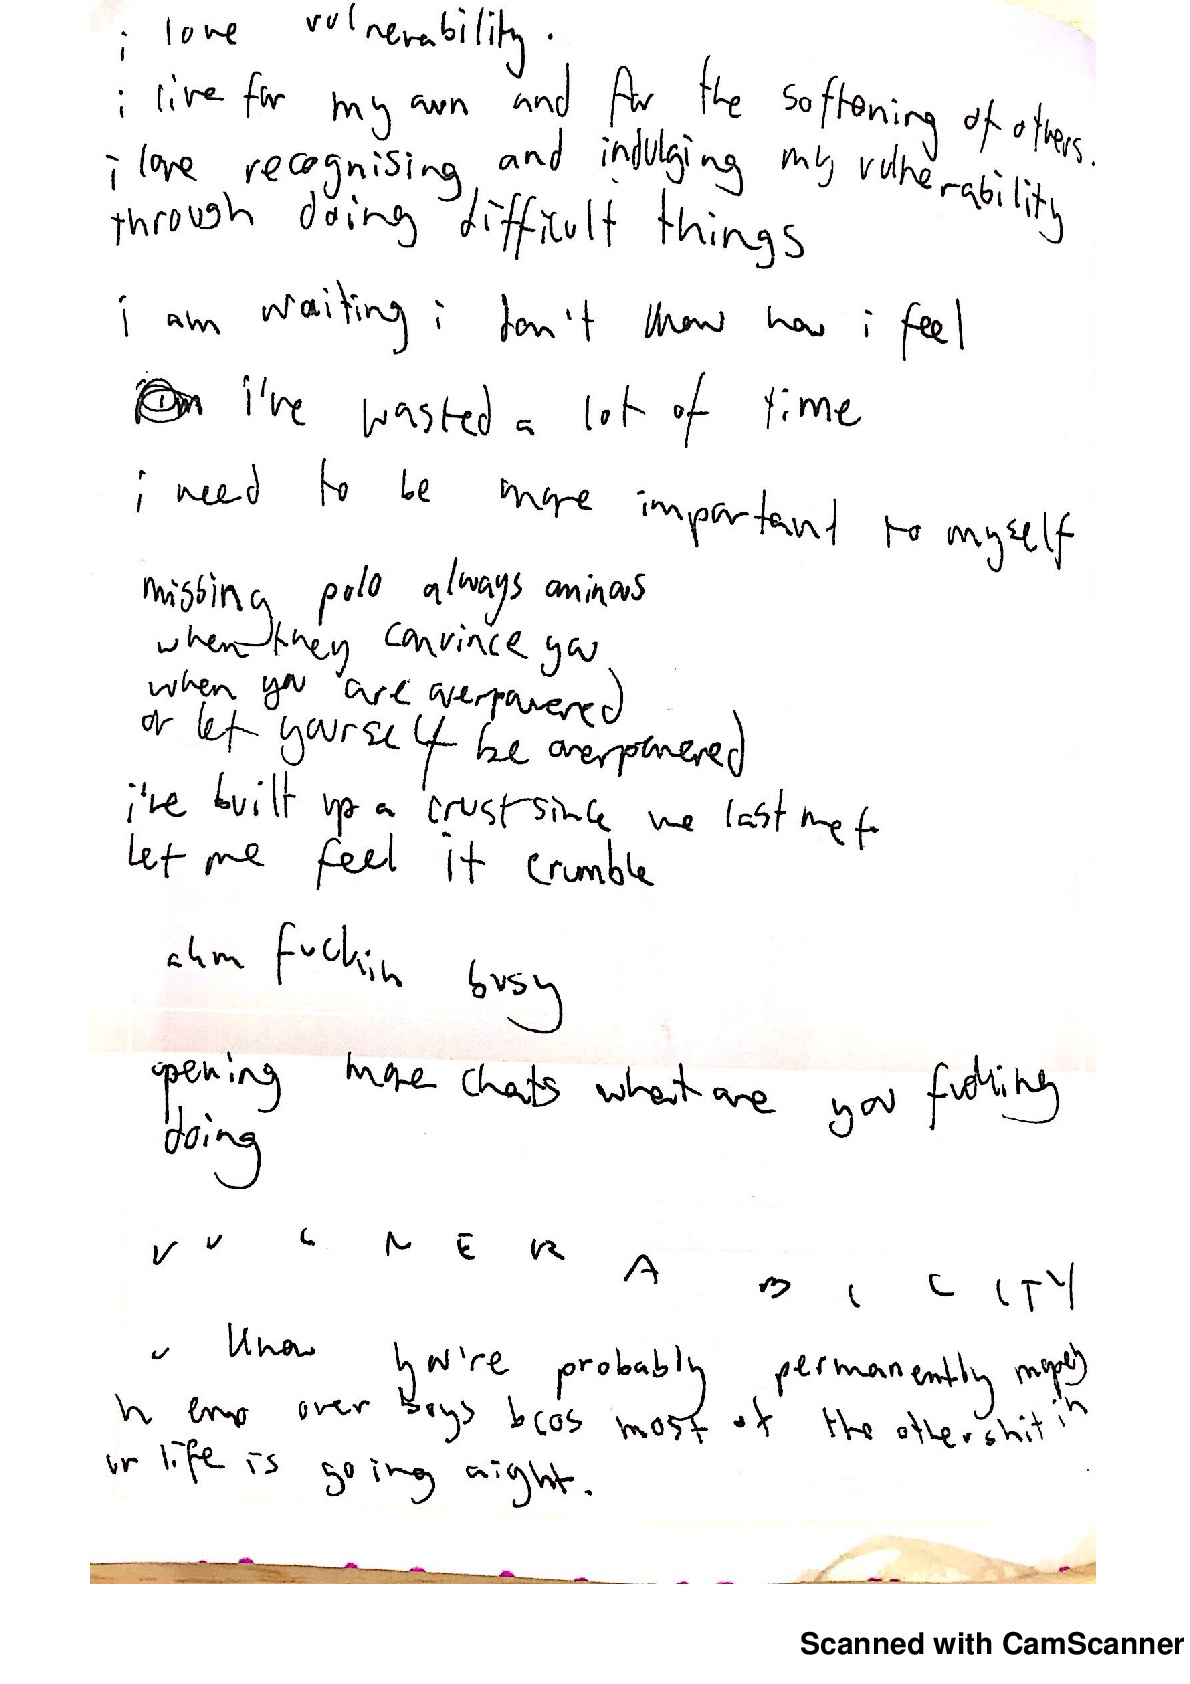 i love vulnerability.
i live for my own and for the softening of others.
i love recognising and indulging my vulnerability
through doing difficult things
i am waiting i don't know how i feel
i've wasted a lot of time
i need to be more important to myself
missing polo always ominous
when they convince you
when you are overpowered
or let yourself be overpowered
i've built up a crust since we last met
let me feel it crumble
ahm fuckin busy
opening more chats what are you fucking
doing
VULNERABILITY
u know you're probably permanently mopey
n emo over boys bcos most of the other shit in
ur life is going aight.
Scanned with CamScanner